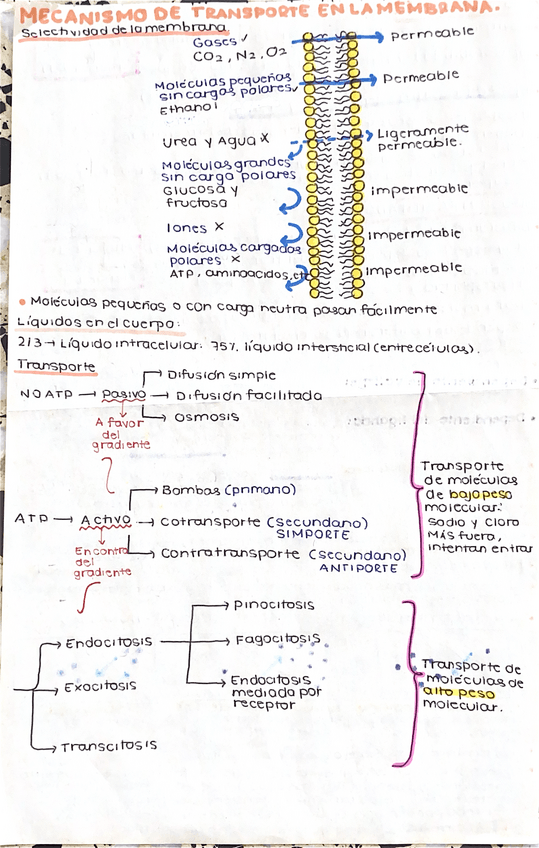 MECANISMO DE TRANSPORTE EN LA MEMBRANA.
Selectividad de la membrana
Gases ✓
CO2, N2, O2
Permeable
Moléculas pequeñas
sin cargas polares ✓
Ethanol
Permeable
Urea y Agua X
Ligeramente
permeable.
Moléculas grandes
sin carga polares
Glucosa y
fructosa
impermeable
Iones X
impermeable
Moléculas cargadas
polares X
ATP, aminoacidos, etc
Impermeable
• Moléculas pequeñas o con carga neutra pasan fácilmente
Líquidos en el cuerpo:
2/3 → Líquido intracelular. 75% líquido intersticial (entre células).
Transporte
NO ATP → Pasivo
Difusión simple
→ Difusión facilitada
→ Osmosis
A favor
del
gradiente
ATP → Activo
Bombas (primario)
→ Cotransporte (secundario)
SIMPORTE
Contratransporte (secundario)
ANTIPORTE
Encontra
del
gradiente
Transporte
de moléculas
de bajo peso
molecular.
Sodio y Cloro
MÁS fuera,
intentan entrar
→ Endocitosis
→ Pinocitosis
→ Fagocitosis
→ Endocitosis
mediada por
receptor
→ Exocitosis
→ Transcitosis
Transporte de
moléculas de
alto peso
molecular.